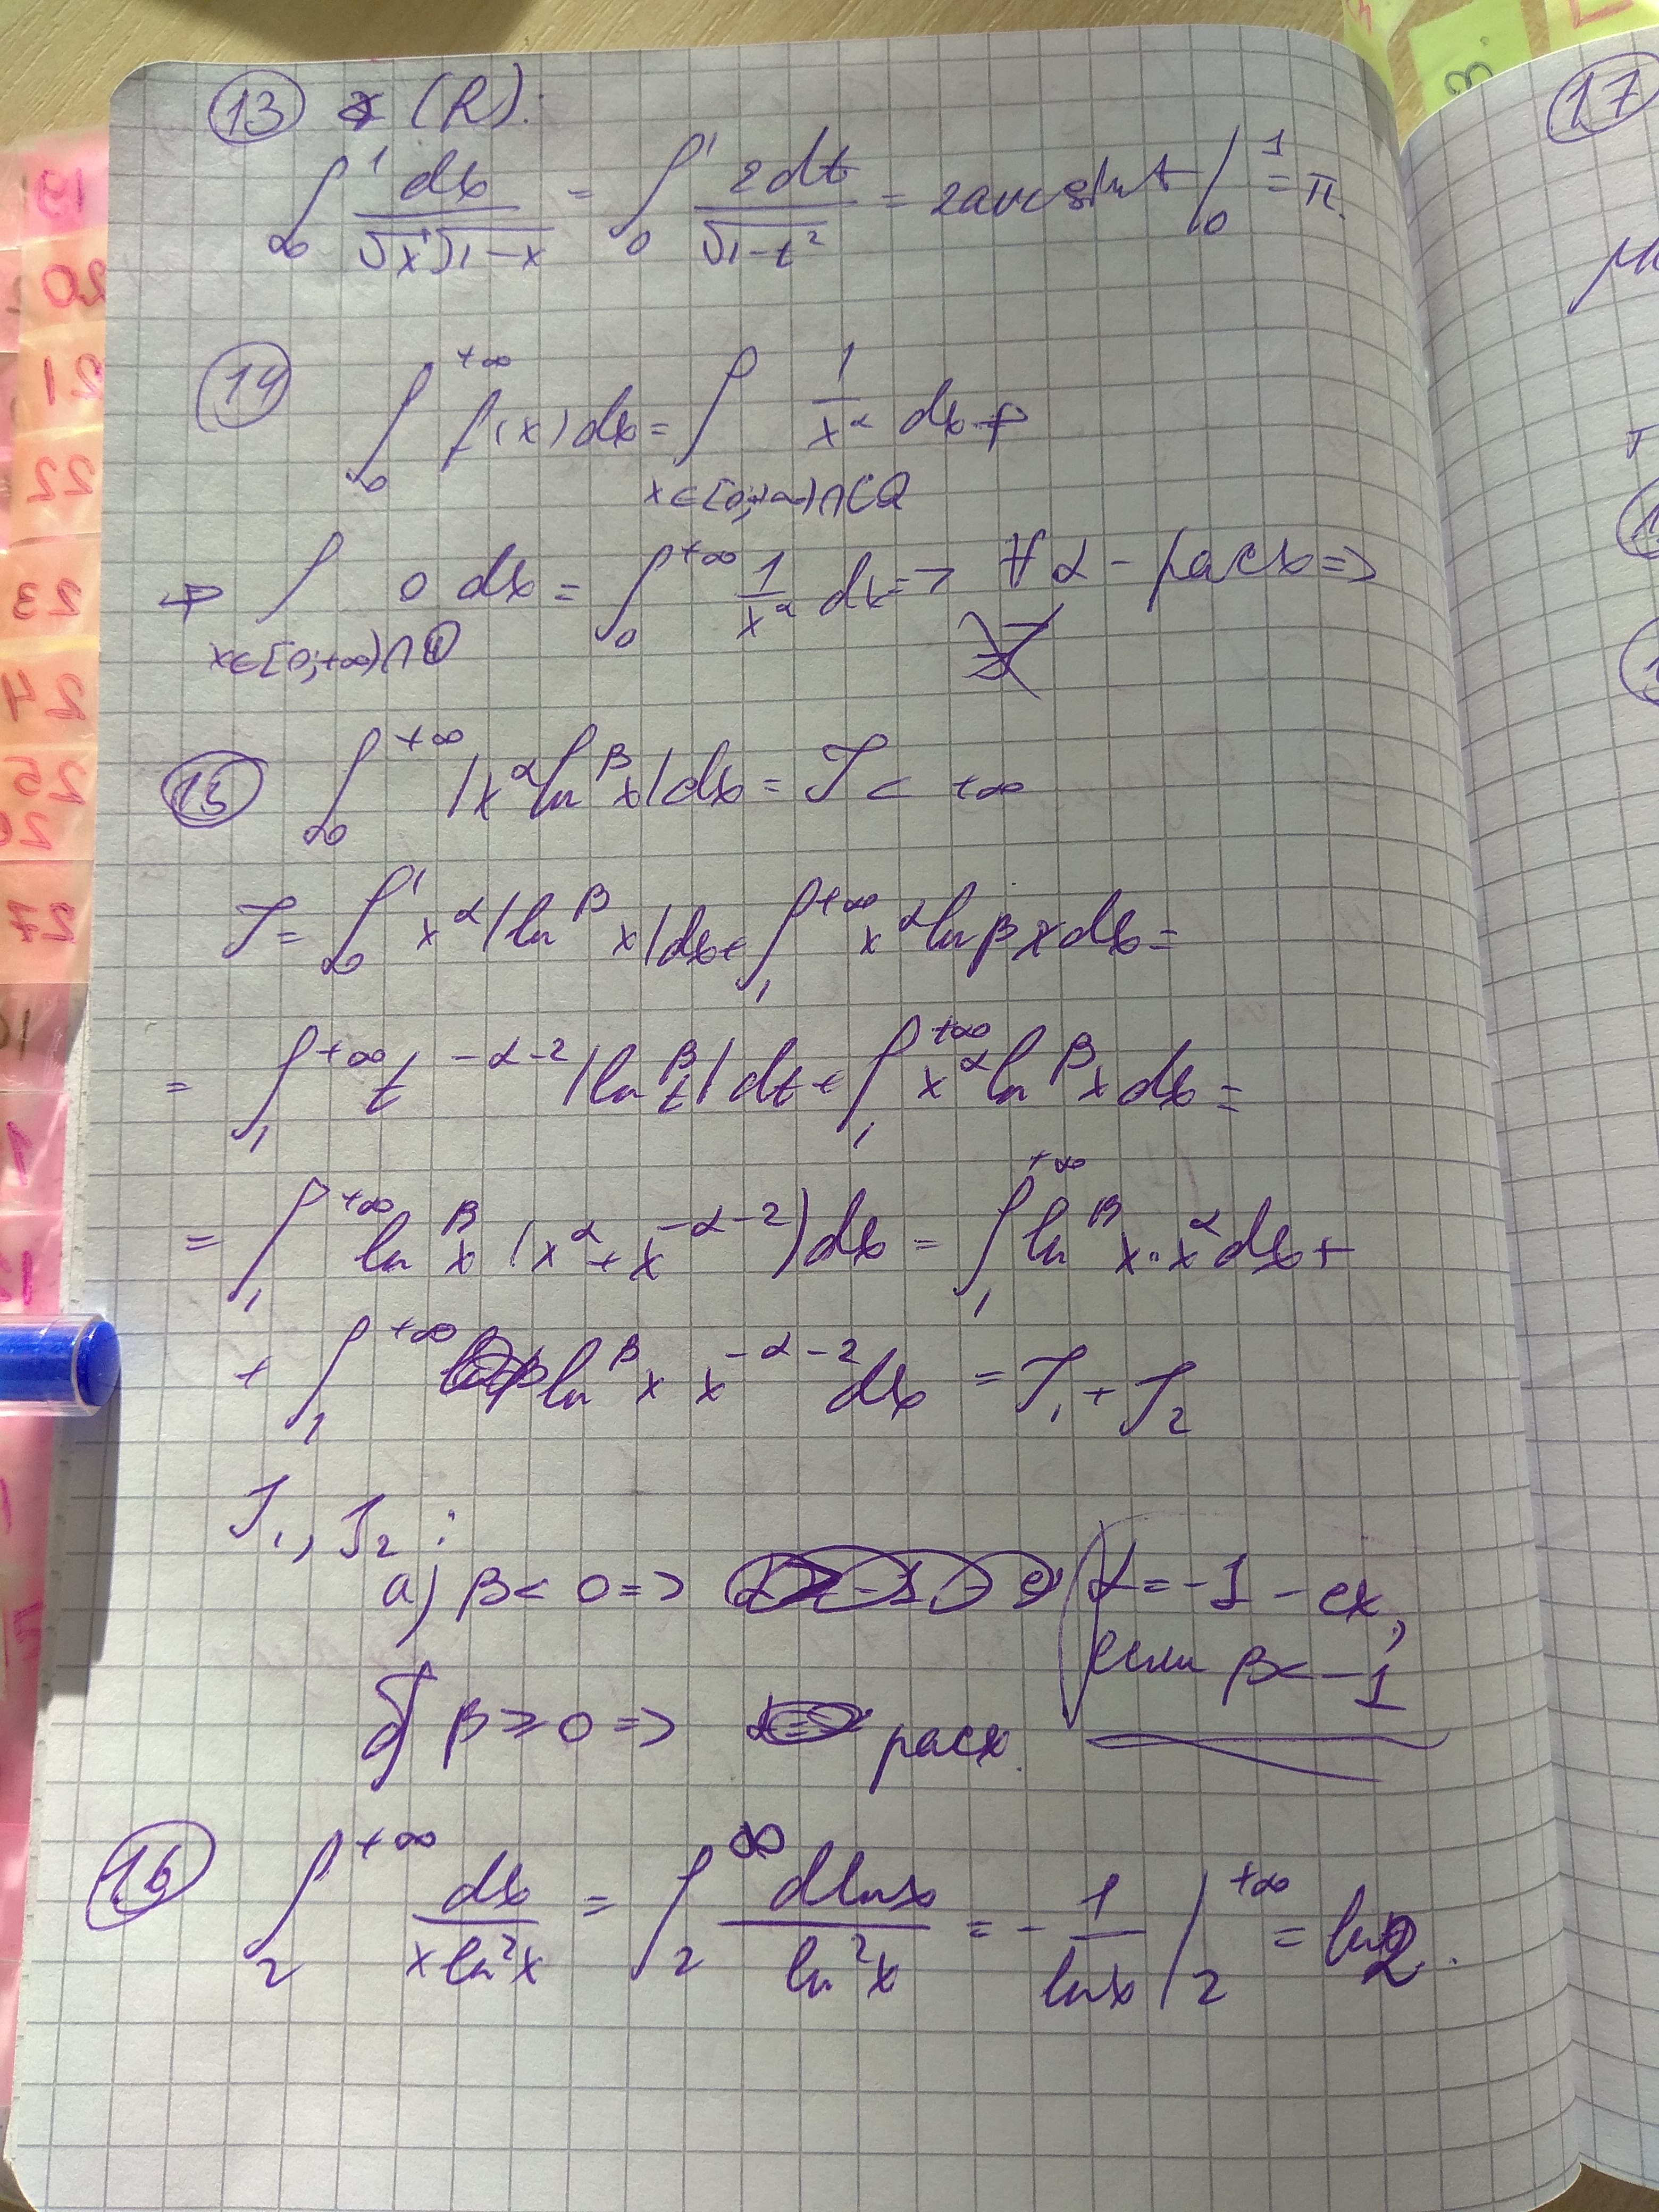 13 (R):
∫₀¹ dx/(√x √1-x) = ∫₀¹ 2dt/√(1-t²) = 2arcsin t |₀¹ = π.
14 ∫₀^{+∞} f(x)dx = ∫_{x∈[0;+∞)∩CQ} 1/x^α dx +
+ ∫_{x∈[0;+∞)∩Q} 0 dx = ∫₀^{+∞} 1/x^α dx => ∀α - расх =>
15 ∫₀^{+∞} |x^α ln^β x| dx = J < +∞
J = ∫₀¹ x^α |ln^β x| dx + ∫₁^{+∞} x^α ln^β x dx =
= ∫₁^{+∞} t^{-α-2} |ln^β t| dt + ∫₁^{+∞} x^α ln^β x dx =
= ∫₁^{+∞} ln^β x (x^α + x^{-α-2}) dx = ∫₁^{+∞} ln^β x · x^α dx +
+ ∫₁^{+∞} ln^β x x^{-α-2} dx = J₁ + J₂
J₁, J₂ :
а) β < 0 => α = -1 - сх,
если β < -1
б) β ≥ 0 => расх.
16 ∫₂^{+∞} dx/(x ln²x) = ∫₂^∞ dlnx/ln²x = -1/lnx |₂^{+∞} = ln2.
17
19
20
21
22
23
24
25
26
27